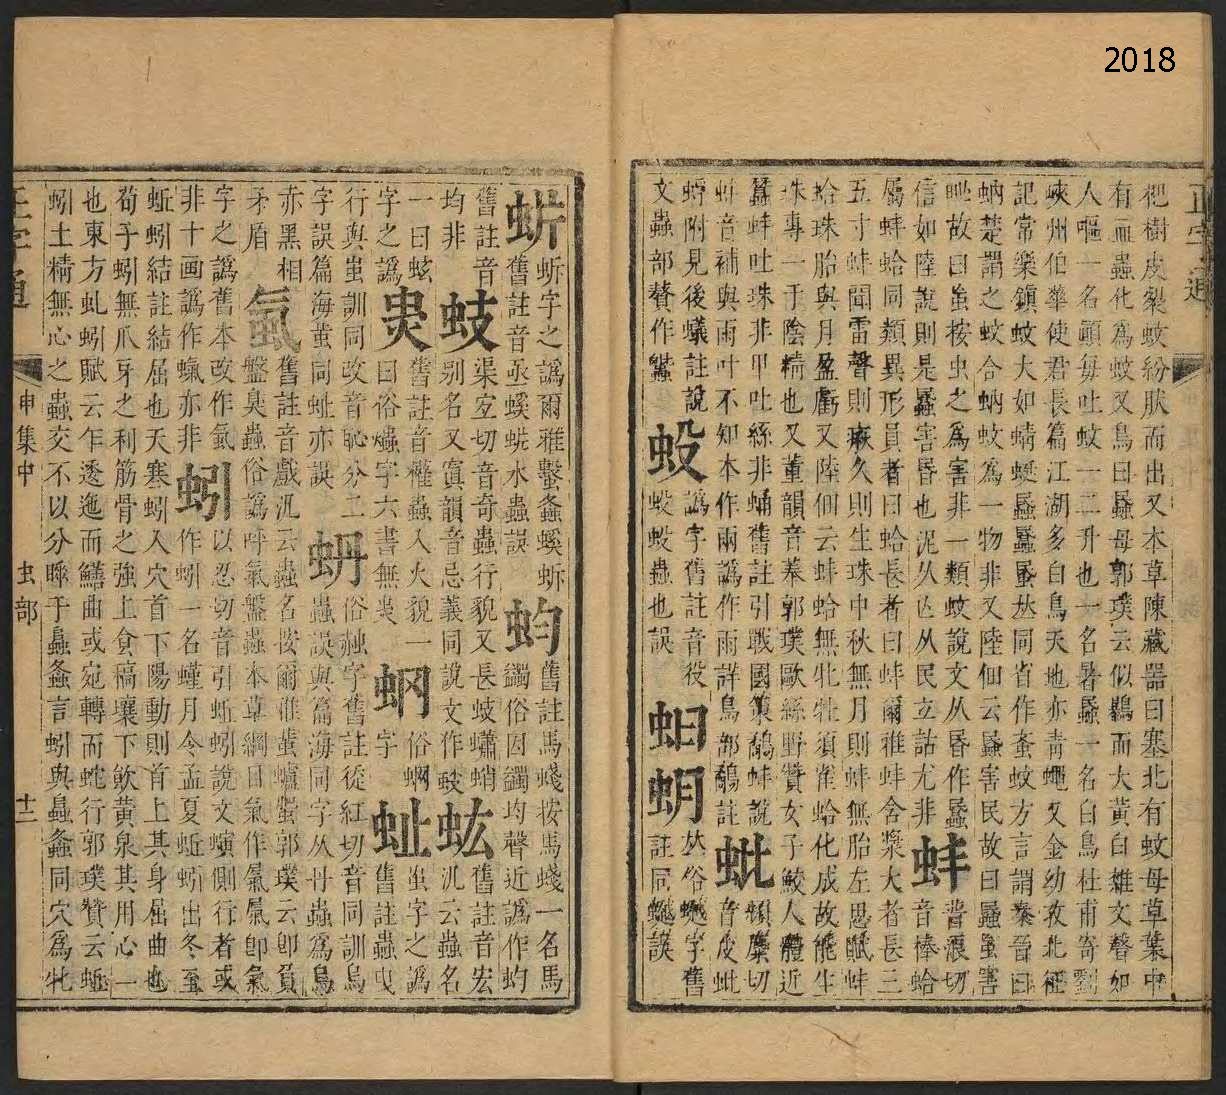 2018
正字通
𣏌樹皮裂蚊紛肰而出又本草陳藏器曰塞北有蚊母草葉中
有血蟲化爲蚊又鳥曰蟁母郭璞云似鷃而大黃白雜文聲如
人嘔一名顧每吐蚊一二升也一名暑蟁一名白鳥杜甫寄劉
峽州伯華使君長篇江湖多白鳥天地亦靑蠅又金幼孜北征
記常樂鎭蚊大如蜻蜓蟁蟁䖟𠀤同省作䖟蚊方言謂秦晉曰
蚋楚謂之蚊合蚋蚊爲一物非又陸佃云蟁害民故曰蟁䖟害
甿故曰䖟按虫之爲害非一類蚊說文从昏作蟁
信如陸說則是蟁害昏也泥从亾从民立詁尤非蚌音棒蛤
屬蚌蛤同類異形員者曰蛤長者曰蚌爾雅蚌含漿大者長三
五寸蚌聞雷聲則㾺久則生珠中秋無月則蚌無胎左思賦蚌
蛤珠胎與月盈虧又陸佃云蚌蛤無牝牡須雀蛤化成故能生
珠專一于陰精也又董韻音菶郭璞歐絲野贊女子鮫人體近
蠶蚌吐珠非甲吐絲非蛹舊註引戰國策鷸蚌說
蚌音補與雨叶不知本作兩譌作雨詳鳥部鷸註蚍音皮蚍
蜉附見後蟻註說譌字舊註音役
文蟲部贅作蠥蚥蟲也誤蚎註同
蚚蚚字之譌爾雅䗥螽蟿蚚蚐舊註馬蝬按馬蝬一名馬
舊註音丞蟓蜙水蟲誤蠲俗因蠲均聲近譌作蚐
均非蚑渠宐切音奇蟲行貌又長蚑蠨蛸蚿汎云蟲名
一曰蚿別名又寘韻音忌義同說文作䗁舊註音宏
字之譌蚗舊註音權蟲入火貌一字䖟字之譌
行與䖝訓同改音恥分二俗䖵字舊註從紅切音同訓烏
字誤篇海䖝同蚔亦誤蚦蟲誤與篇海同字从丹蟲爲烏
亦黑相䖧舊註音戲汎云蟲名按爾雅蜚蠦蜰郭璞云卽負
矛盾盤臭蟲俗譌呼氣盤蟲本草綱目氣作㞒㞒卽氣
字之譌舊本改作氣蚓以忍切音引蚯蚓說文螾側行者或
非十画譌作螇亦非作蚓一名螼月令孟夏蚯蚓出冬至
蚯蚓結註結屈也天寒蚓入穴首下陽動則首上其身屈曲也
荀子蚓無爪牙之利筋骨之強上食稿壤下飮黃泉其用心一
也東方虬蚓賦云乍逶迤而鱔曲或宛轉而蛇行郭璞贊云蚯
蚓土精無心之蟲交不以分睽于蟲螽言蚓與蟲螽同穴爲牝
正字通
申集中
虫部
十二